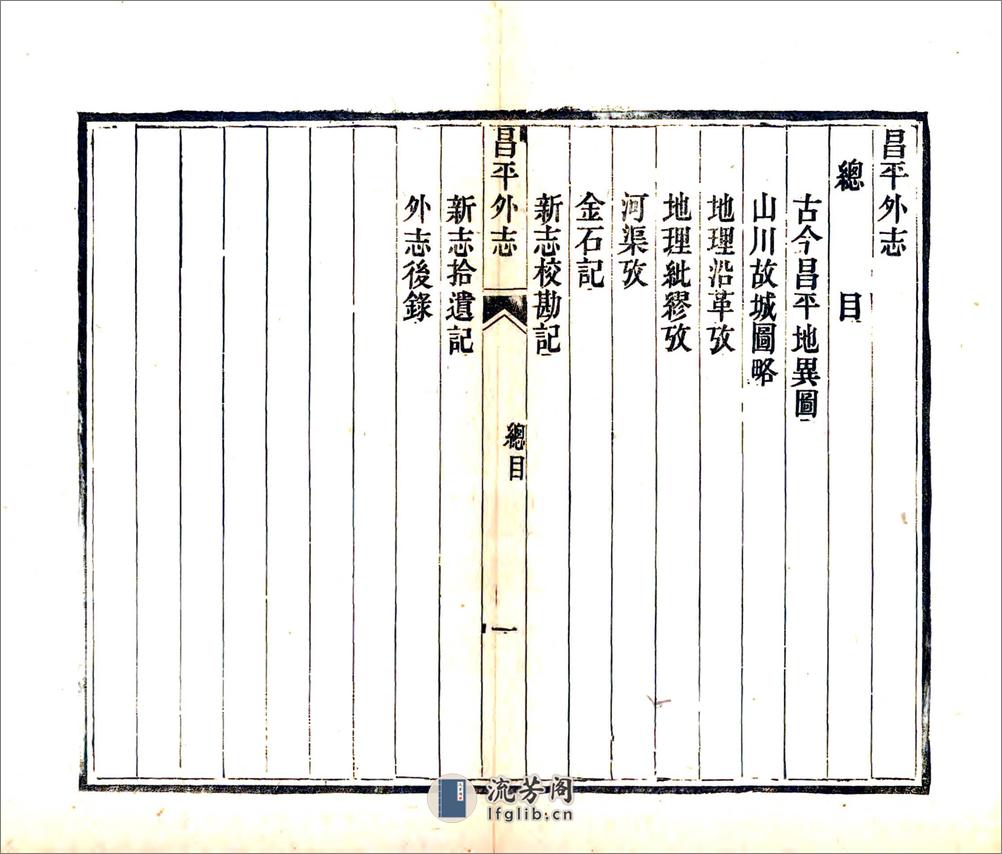 昌平外志
總目
古今昌平地異圖
山川故城圖略
地理沿革攷
地理紕繆攷
河渠攷
金石記
新志校勘記
昌平外志
總目
一
新志拾遺記
外志後錄
流芳阁
lfglib.cn